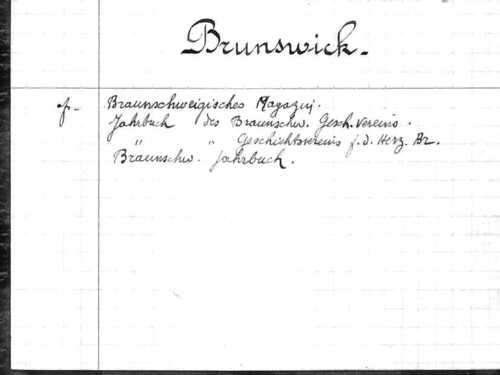 Brunswick.
f- Braunschweigisches Magazin.
Jahrbuch des Braunschw. Gesch. Vereins.
" " Geschichtsvereins f. d. Herz. Br.
Braunschw. Jahrbuch.